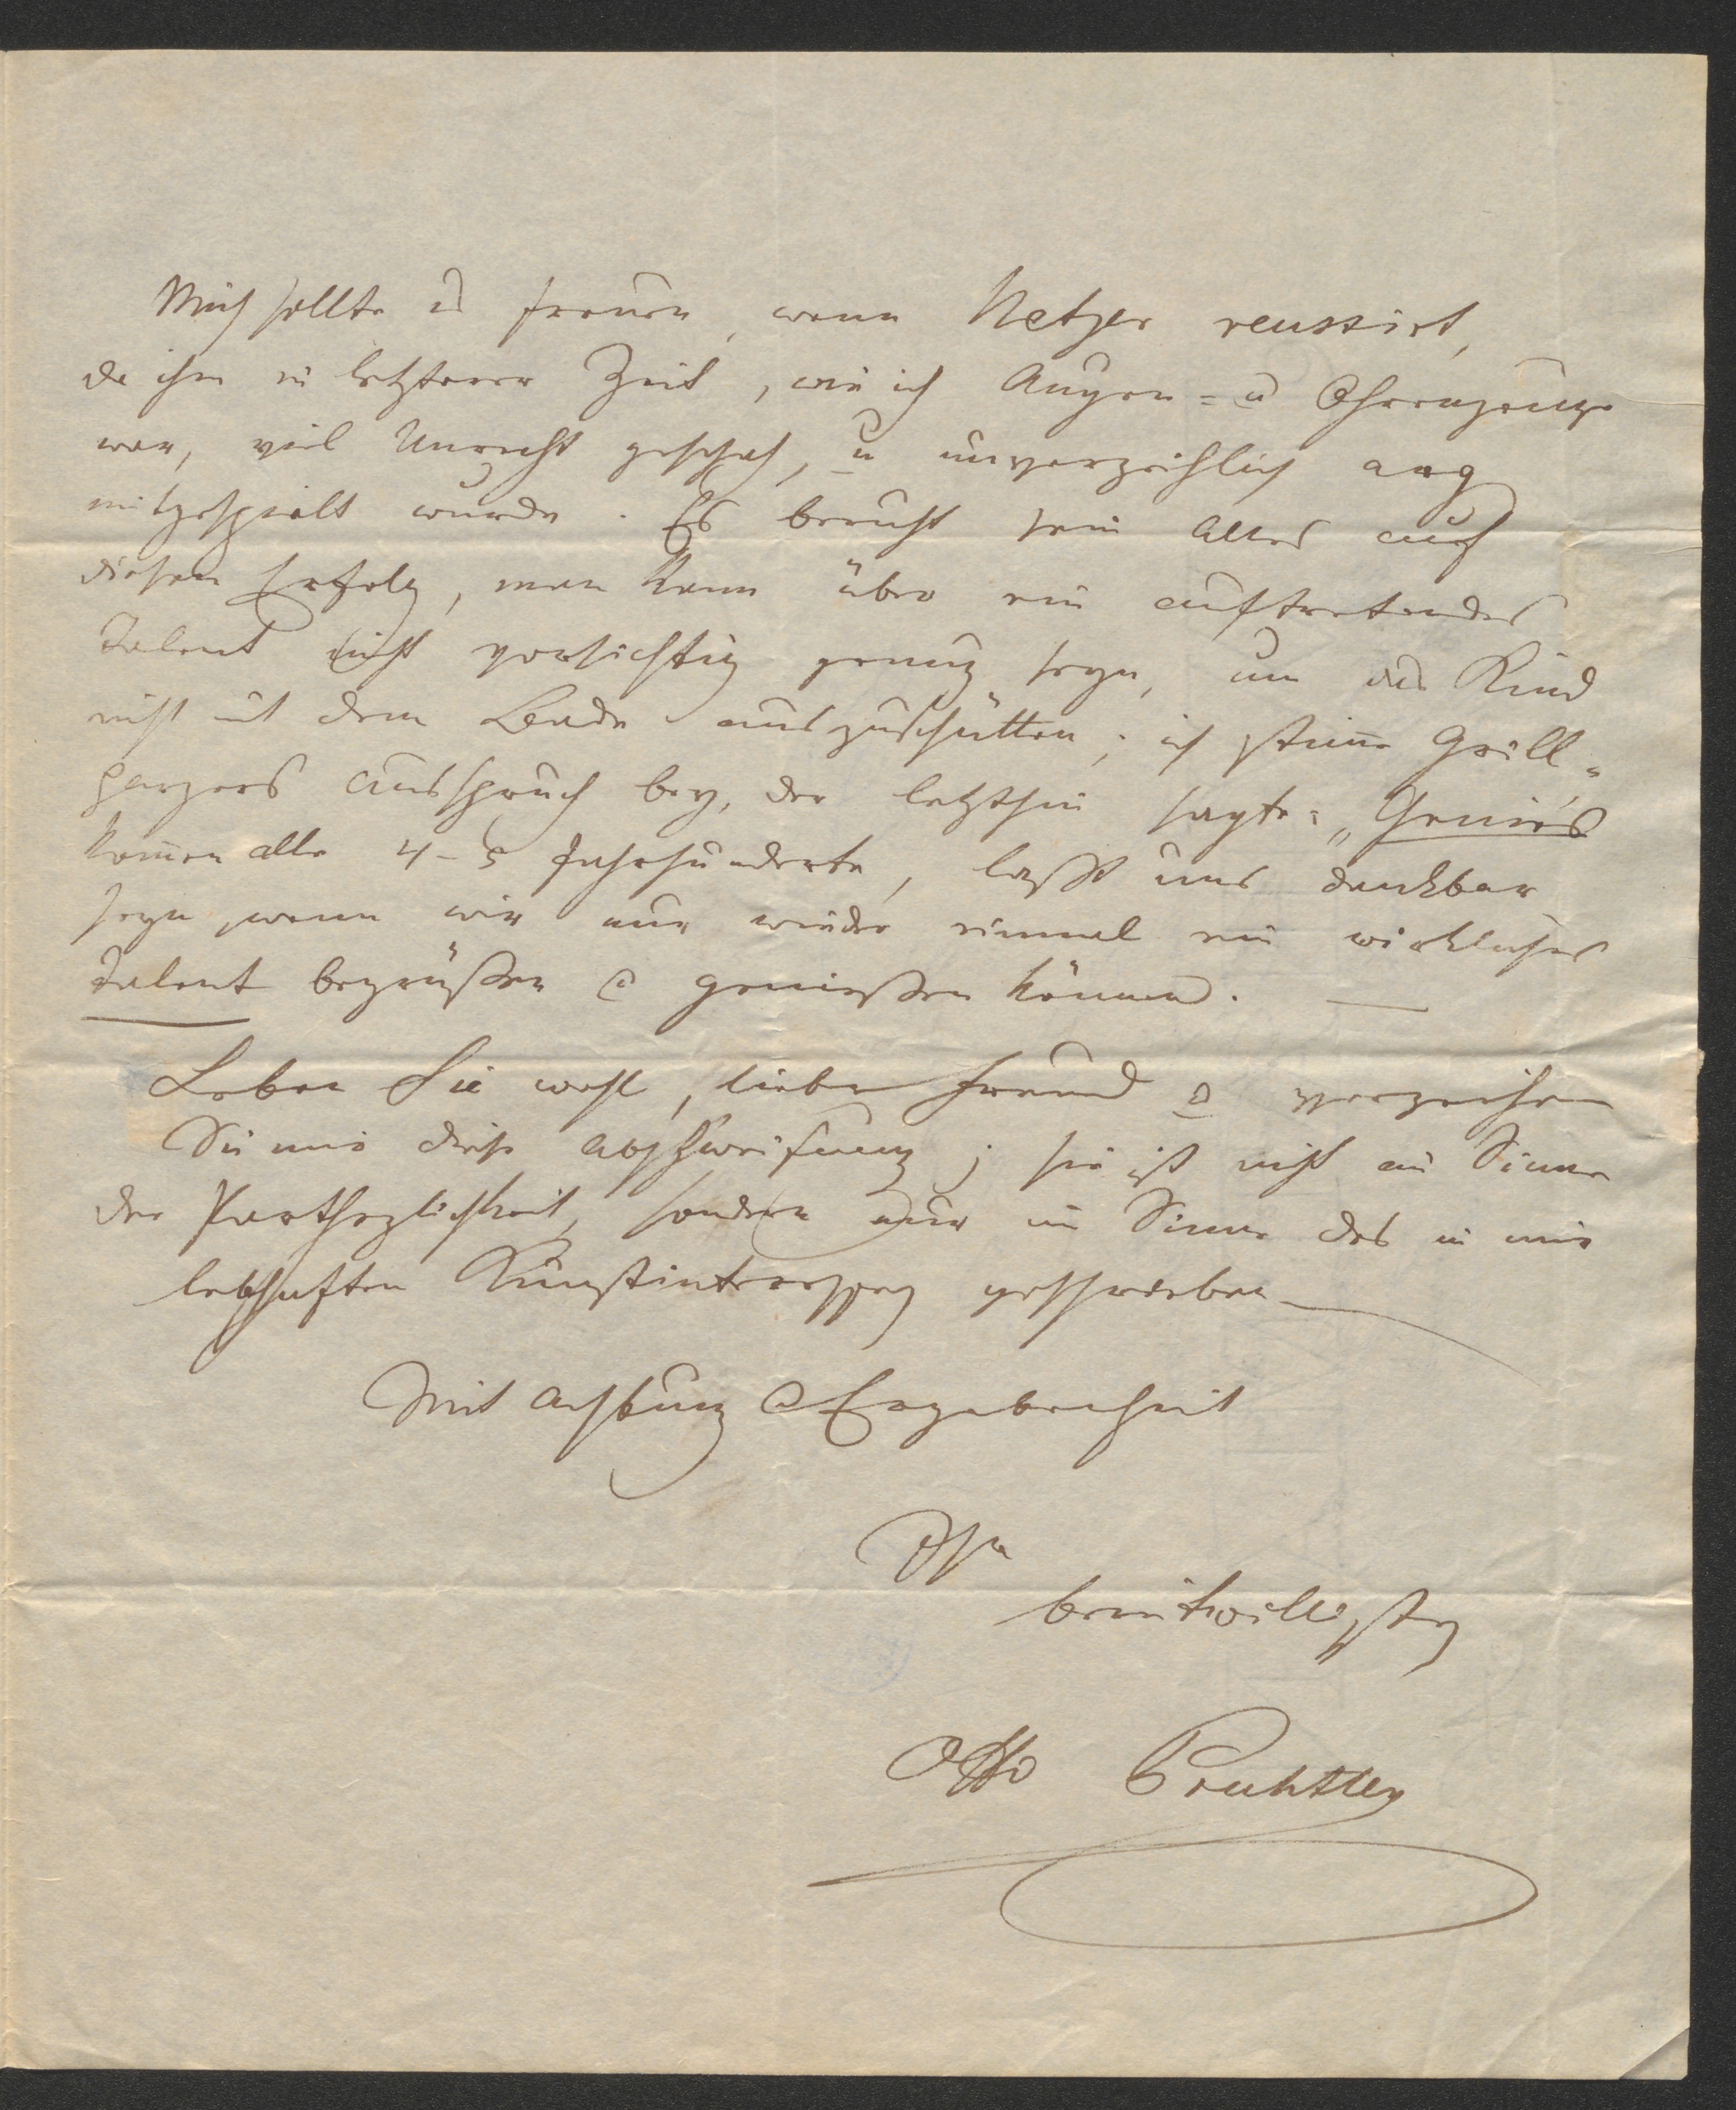 Mich sollte es freuen, wenn Netzer reussirt,
da ihm in letzterer Zeit, wie ich Augen- u Ohrenzeuge
war, viel Unrecht geschah, u unverzeihlich arg
mitgespielt wurde. Es beruht sein Alles auf
diesem Erfolg, man kann über ein auftretendes
Talent nicht vorsichtig genug seyn, um das Kind
nicht mit dem Bade auszuschütten; ich stimme Grill-
parzers Ausspruch bey, der letzthin sagte: „Genies
kommen alle 4-5 Jahrhunderte, laßt uns dankbar
seyn, wenn wir nur wieder einmal ein wirkliches
Talent begrüßen u genießen können. —
Leben Sie wohl, lieber Freund u verzeihen
Sie mir diese Abschweifung; sie ist nicht im Sinne
der Partheylichkeit, sondern nur im Sinne des in mir
lebhaften Kunstinteresses geschrieben —
Mit Achtung u Ergebenheit
Ihr
bereitwilligster
Otto Prechtler